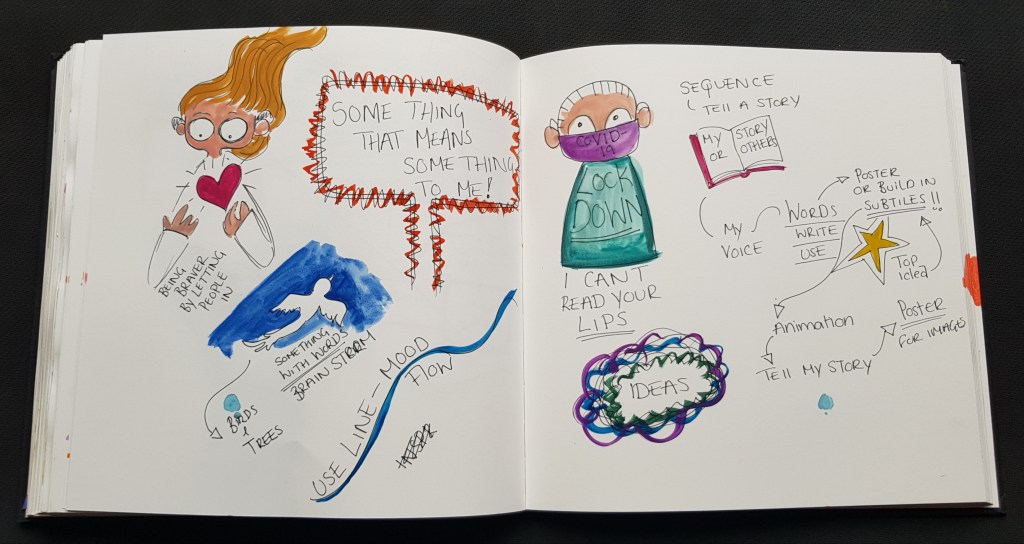 SOME THING
THAT MEANS
SOMETHING
TO ME!
BEING
BRAVER
BY LETTING
PEOPLE
IN
SOMETHING
WITH WORDS
BRAIN STORM
BIRDS
&
TREES
USE LINE - MOOD
FLOW
COVID-
19
LOCK
DOWN
I CANT
READ YOUR
LIPS
IDEAS
SEQUENCE
TELL A STORY
MY
OR
STORY
OTHERS
MY
VOICE
WORDS
WRITE
USE
POSTER
OR BUILD IN
SUBTILES!!
TOP
idea
Animation
TELL MY STORY
POSTER
FOR IMAGES